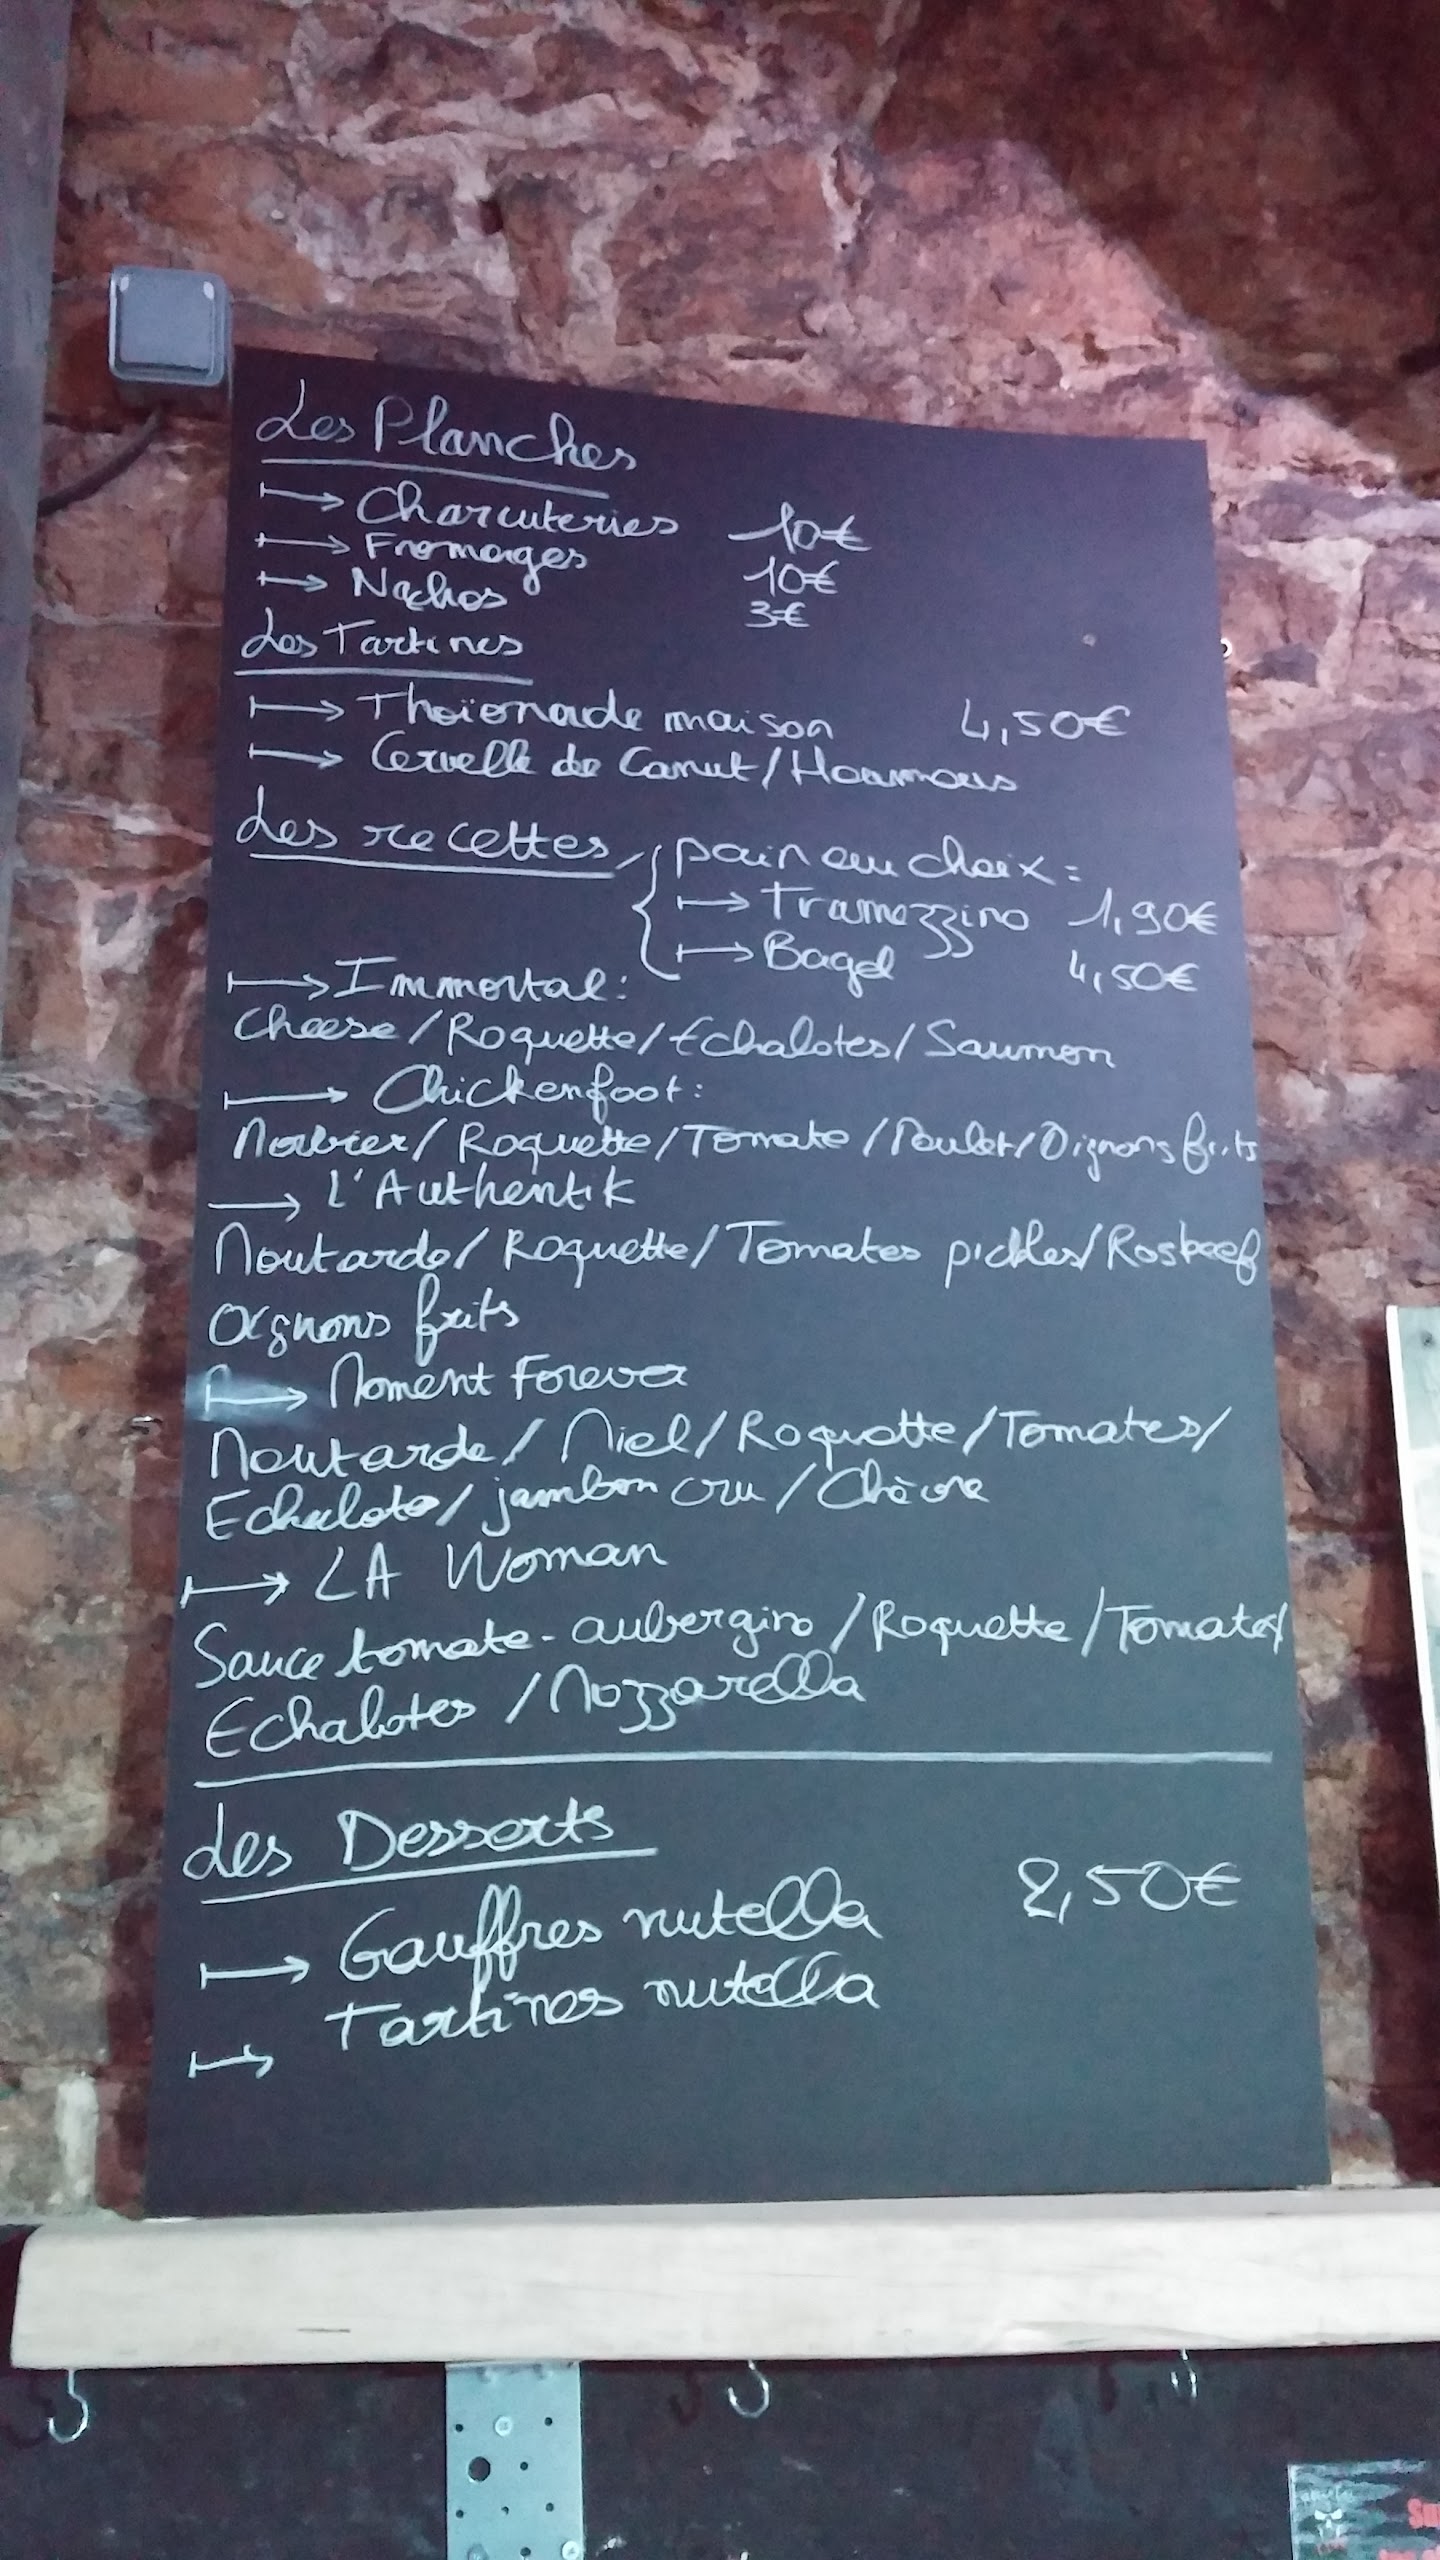 Les Planches
Charcuteries 10€
Fromages 10€
Nachos 3€
Les Tartines
Thoïonade maison 4,50€
Cervelle de Canut/Houmous
Les recettes
pain au choix:
Tramezzino 1,90€
Bagel 4,50€
Immortal:
Cheese/Roquette/Echalotes/Saumon
Chickenfoot:
Morbier/Roquette/Tomate/Poulet/Oignons frits
L'Authentik
Moutarde/Roquette/Tomates pickles/Rosbeef
Oignons frits
Moment Forever
Moutarde/Miel/Roquette/Tomates/
Echalote/jambon cru/Chèvre
LA Woman
Sauce tomate-aubergine/Roquette/Tomates/
Echalotes/Mozzarella
Les Desserts
Gauffres nutella 2,50€
Tartines nutella